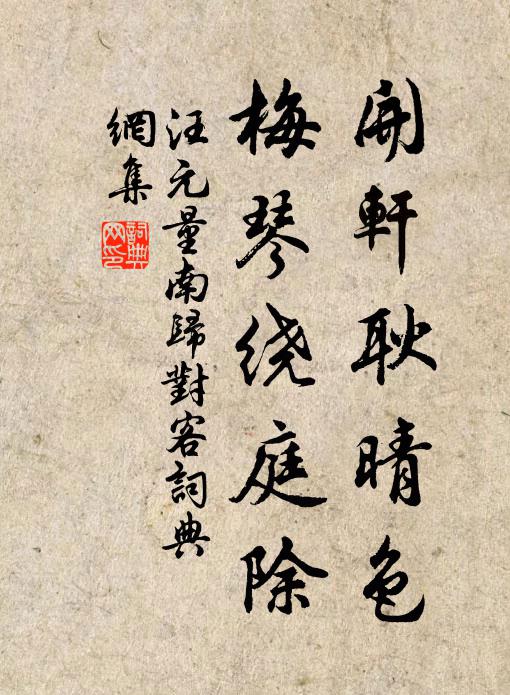 開軒耿晴色
梅琴绕庭除
汪元量南歸對客詞典
網集
詞典網印